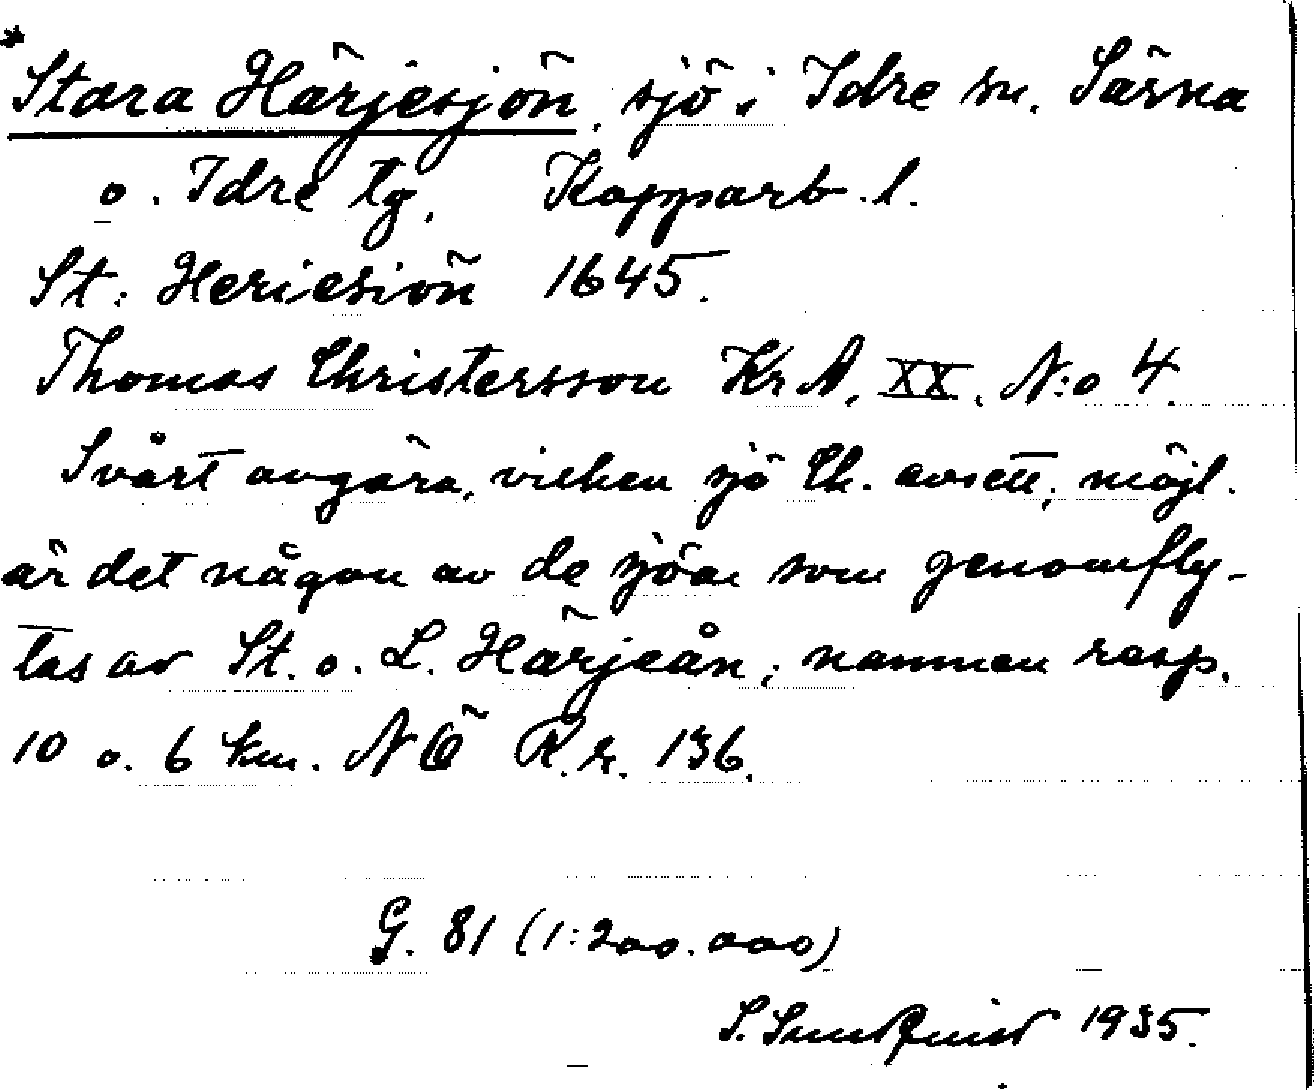 *Stora Härjesjön, sjö i Idre sn. Särna
o. Idre tg. Kopparb. l.
St: Heriesiön 1645.
Thomas Christersson Kr A. XX. N:o 4.
Svårt avgöra, vilken sjö Ch. avsett; möjl.
är det någon av de sjöar som genomfly-
tas av St. o. L. Härjeån; namnen resp.
10 o. 6 km. NÖ R.r. 136.
G. 81 (1:200.000)
S. Sundquist 1935.